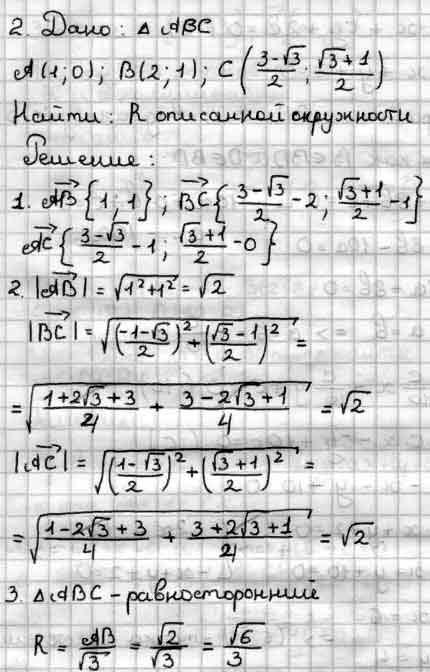 2. Дано: △ ABC
A(1;0); B(2;1); C((3-√3)/2; (√3+1)/2)
Найти: R описанной окружности
Решение:
1. AB⃗{1;1}; BC⃗{(3-√3)/2 - 2; (√3+1)/2 - 1}
AC⃗{(3-√3)/2 - 1; (√3+1)/2 - 0}
2. |AB⃗| = √(1²+1²) = √2
|BC⃗| = √(((-1-√3)/2)² + ((√3-1)/2)²) =
= √((1+2√3+3)/4 + (3-2√3+1)/4) = √2
|AC⃗| = √(((1-√3)/2)² + ((√3+1)/2)²) =
= √((1-2√3+3)/4 + (3+2√3+1)/4) = √2
3. △ABC - равносторонний
R = AB/√3 = √2/√3 = √6/3